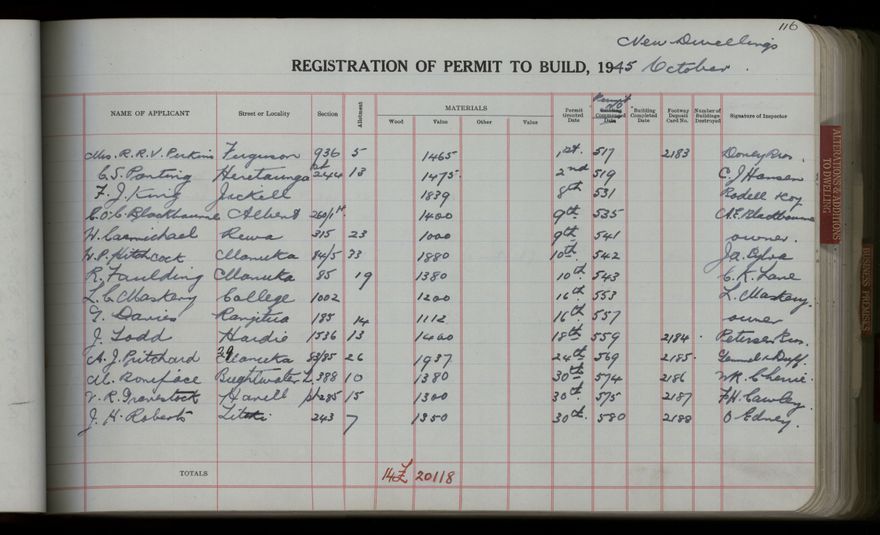 116
New Dwellings
REGISTRATION OF PERMIT TO BUILD, 1945 October.
NAME OF APPLICANT Street or Locality Section Allotment MATERIALS Wood Value Other Value Permit Granted Date Permit No Building Commenced Date Building Completed Date Footway Deposit Card No. Number of Buildings Destroyed Signature of Inspector
Mrs. R. R. V. Perkins Ferguson 936 5 1465 1st. 517 2183 Doney Bros.
C. S. Ponting Heretaunga pt 244 13 1475. 2nd 519 C. J. Hansen
F. J. King Jickell 1839 8th 531 Rodell Koy
C. O. C. Blackbourne Albert 260/1 1400 9th 535 A. E. Blackbourne
W. Carmichael Rewa 315 23 1000 9th 541 owner.
W. P. Hitchcock Manuka 84/5 33 1880 10th 542
R. Faulding Manuka 85 19 1380 10th. 543 C. K. Lane
L. C. Maskery College 1002 1200 16th 553 L. Maskery.
G. Davies Rangitua 185 14 1112 16th 557 owner
J. Todd Hardie 1536 13 1400 18th 559 2184 Petersen Bros.
A. J. Pritchard 29 Manuka 83/85 26 1937 24th 569 2185.
M. Boniface Brightwater T. 388 10 1380 30th 574 2186 W. R. Cherrie.
V. R. Gravestock Havell pt 285 15 1300 30th. 575 2187 F. H. Cawley.
J. H. Roberts Titoki 243 7 1350 30th. 580 2188 O Edney.
TOTALS 14 £ 20118
ALTERATIONS & ADDITIONS TO DWELLING
BUSINESS PREMISES